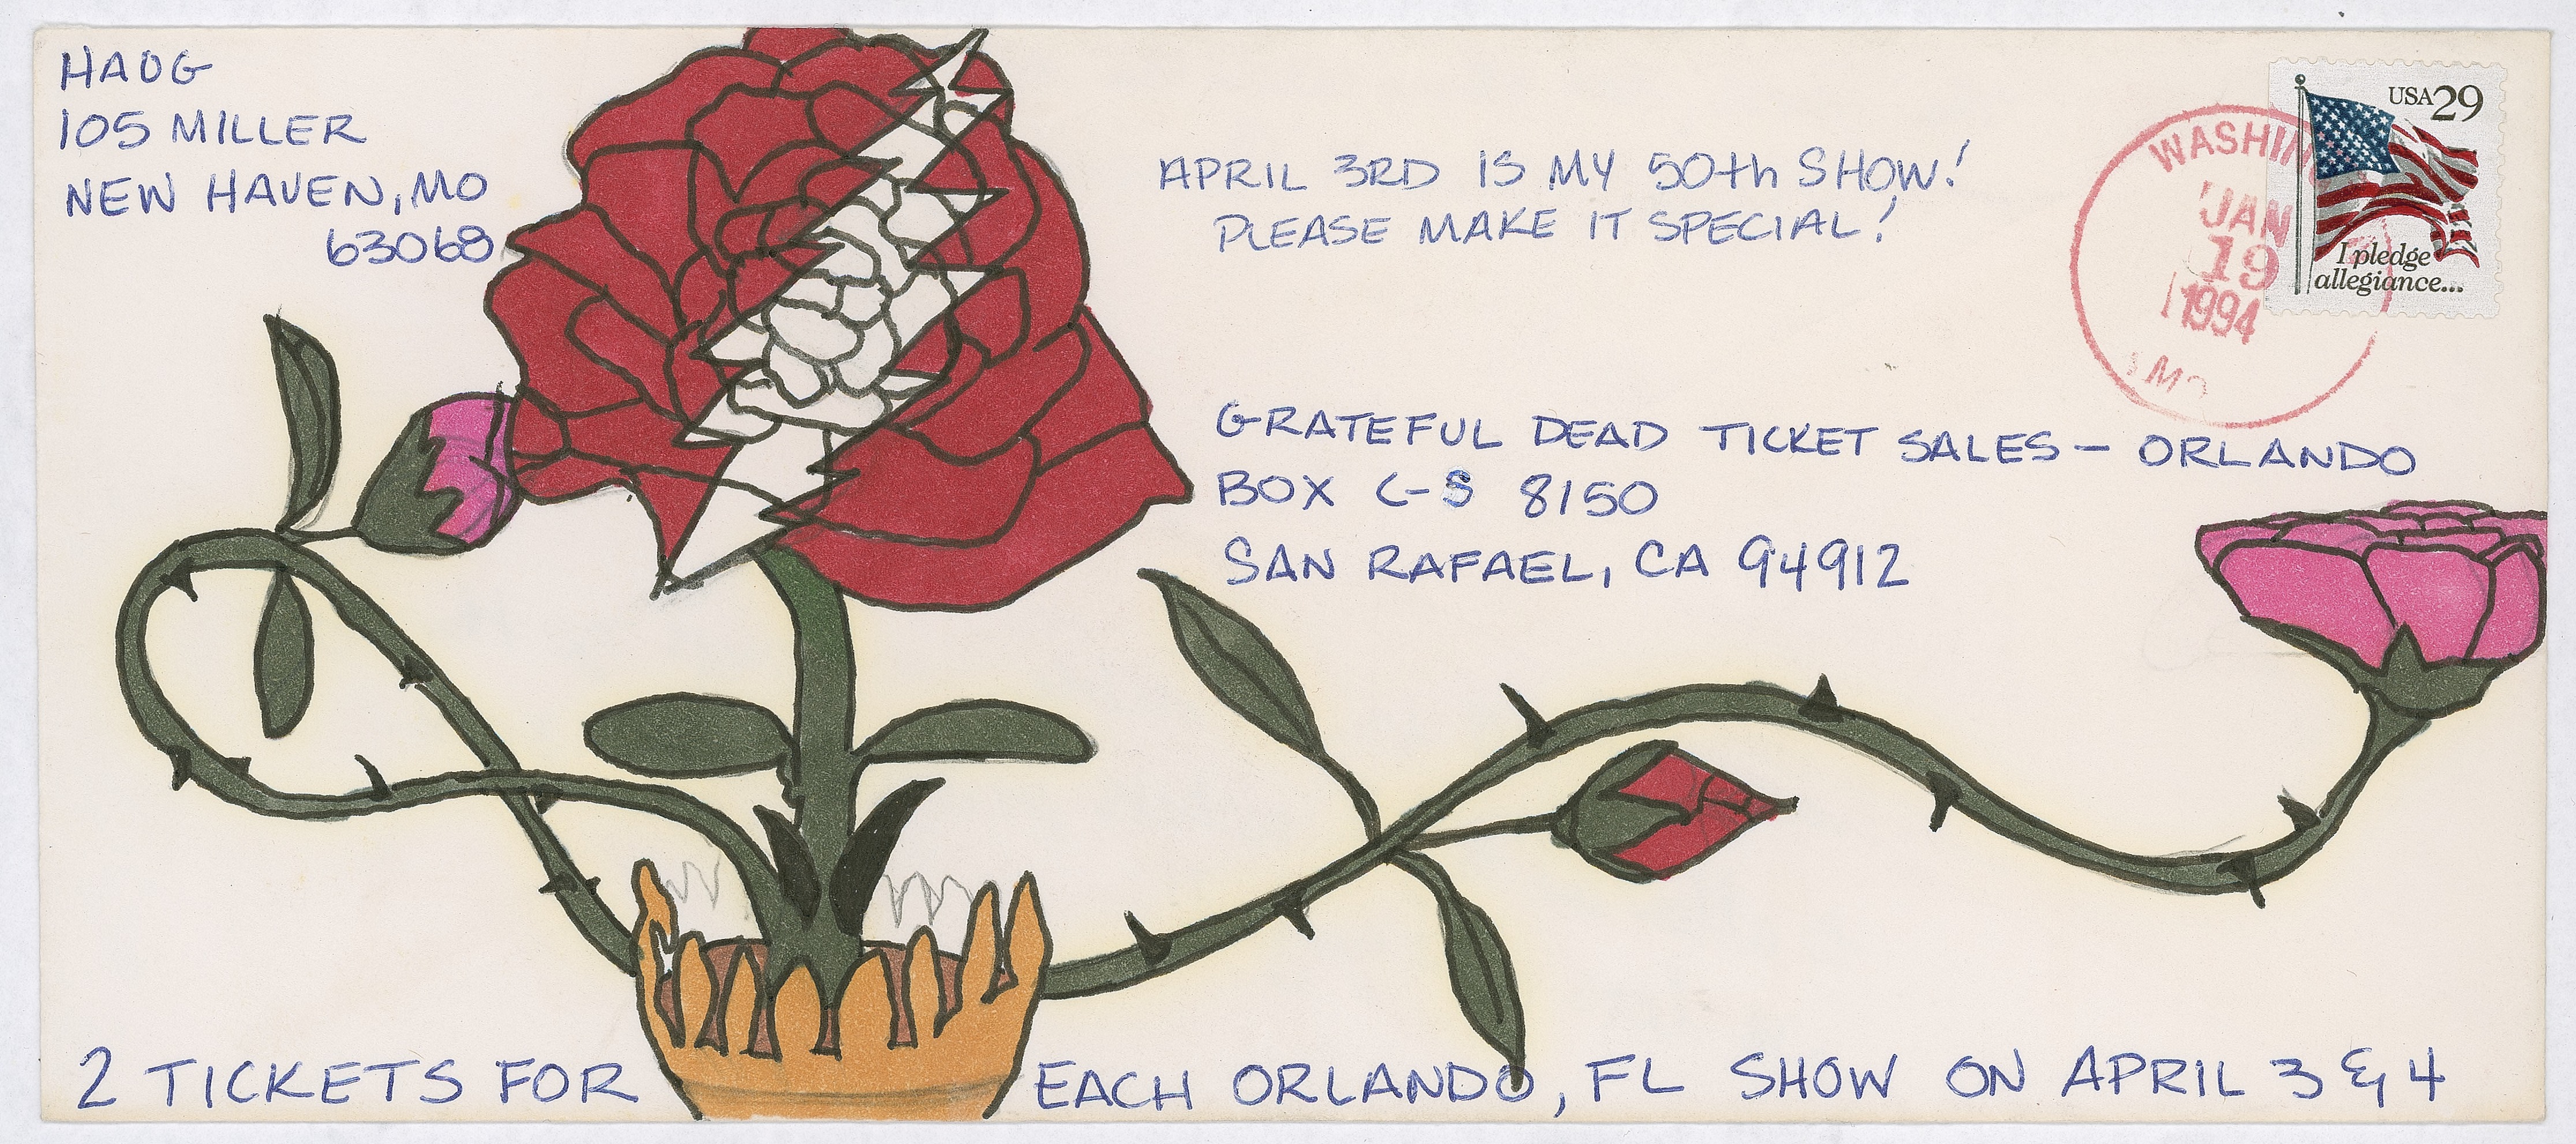 HAUG
105 MILLER
NEW HAVEN, MO
63068
APRIL 3RD IS MY 50th SHOW!
PLEASE MAKE IT SPECIAL!
USA 29
I pledge
allegiance...
JAN
19
1994
MO
GRATEFUL DEAD TICKET SALES - ORLANDO
BOX C-S 8150
SAN RAFAEL, CA 94912
2 TICKETS FOR EACH ORLANDO, FL SHOW ON APRIL 3 & 4